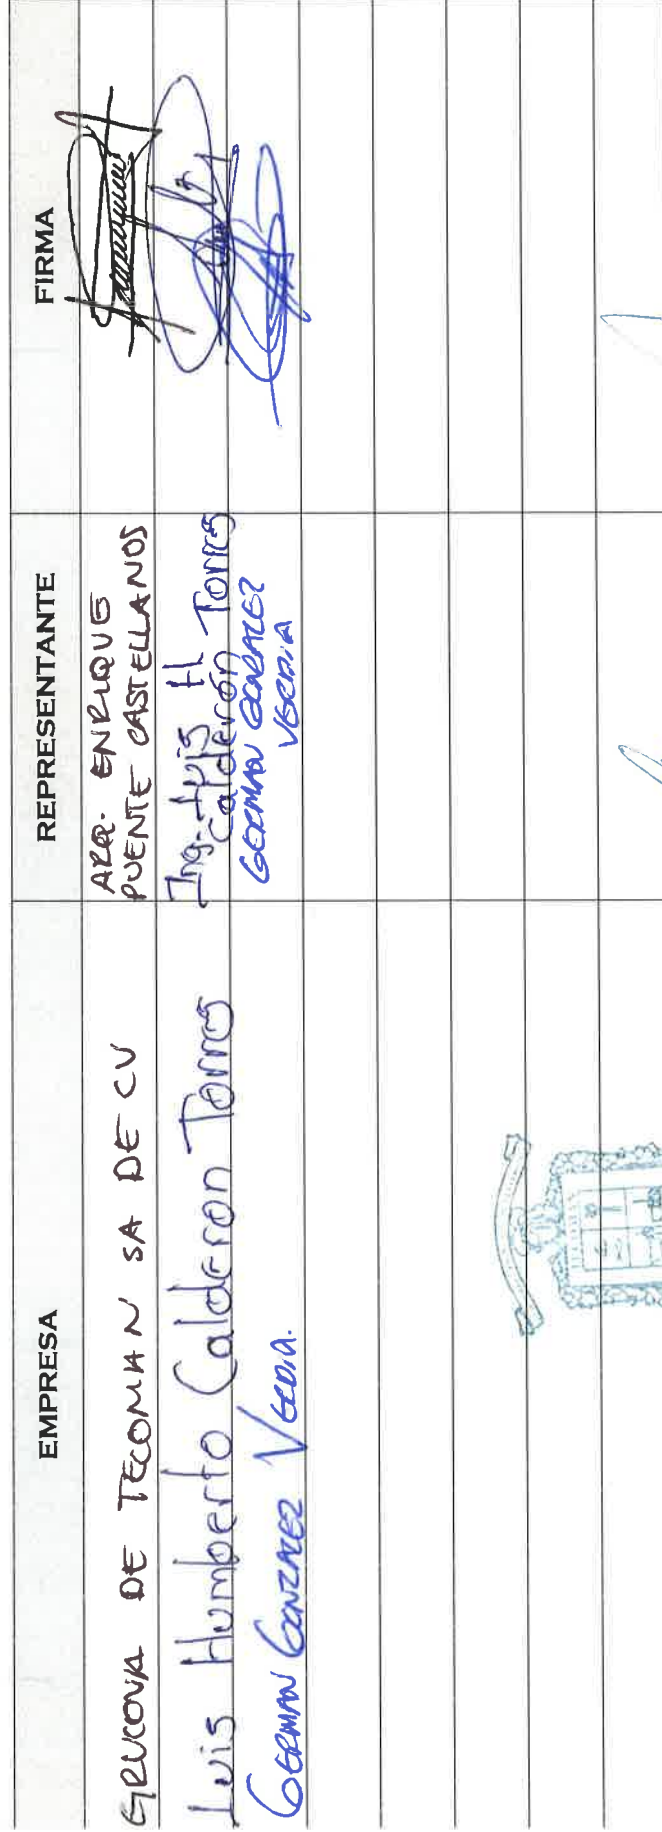 EMPRESA
REPRESENTANTE
FIRMA
GRUCOVA DE TECOMAN SA DE CV
ARQ. ENRIQUE
PUENTE CASTELLANOS
Luis Humberto Calderon Torres
Ing. Luis H
Calderón Torres
GERMAN GONZALEZ VERDIA.
GERMAN GONZALEZ
VERDIA